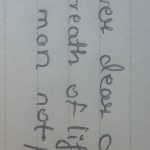 ver dear
reath of lif
man not